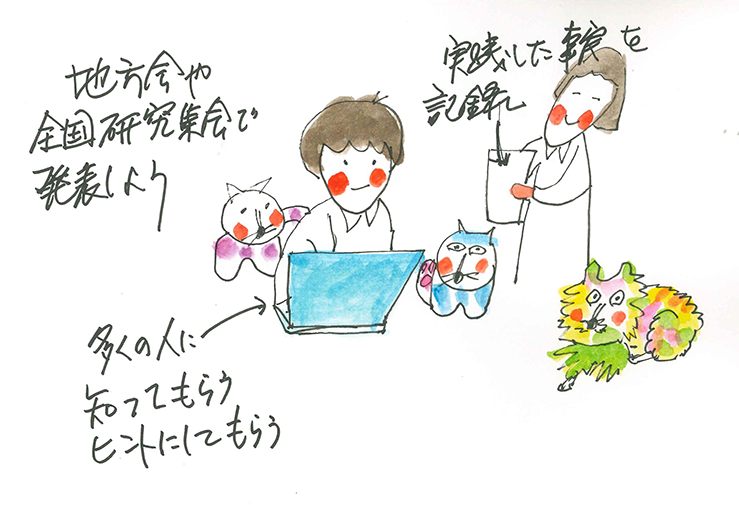 地方会や
全国研究集会で
発表しよう
実践した事実を
記録し
多くの人に
知ってもらう
ヒントにしてもらう